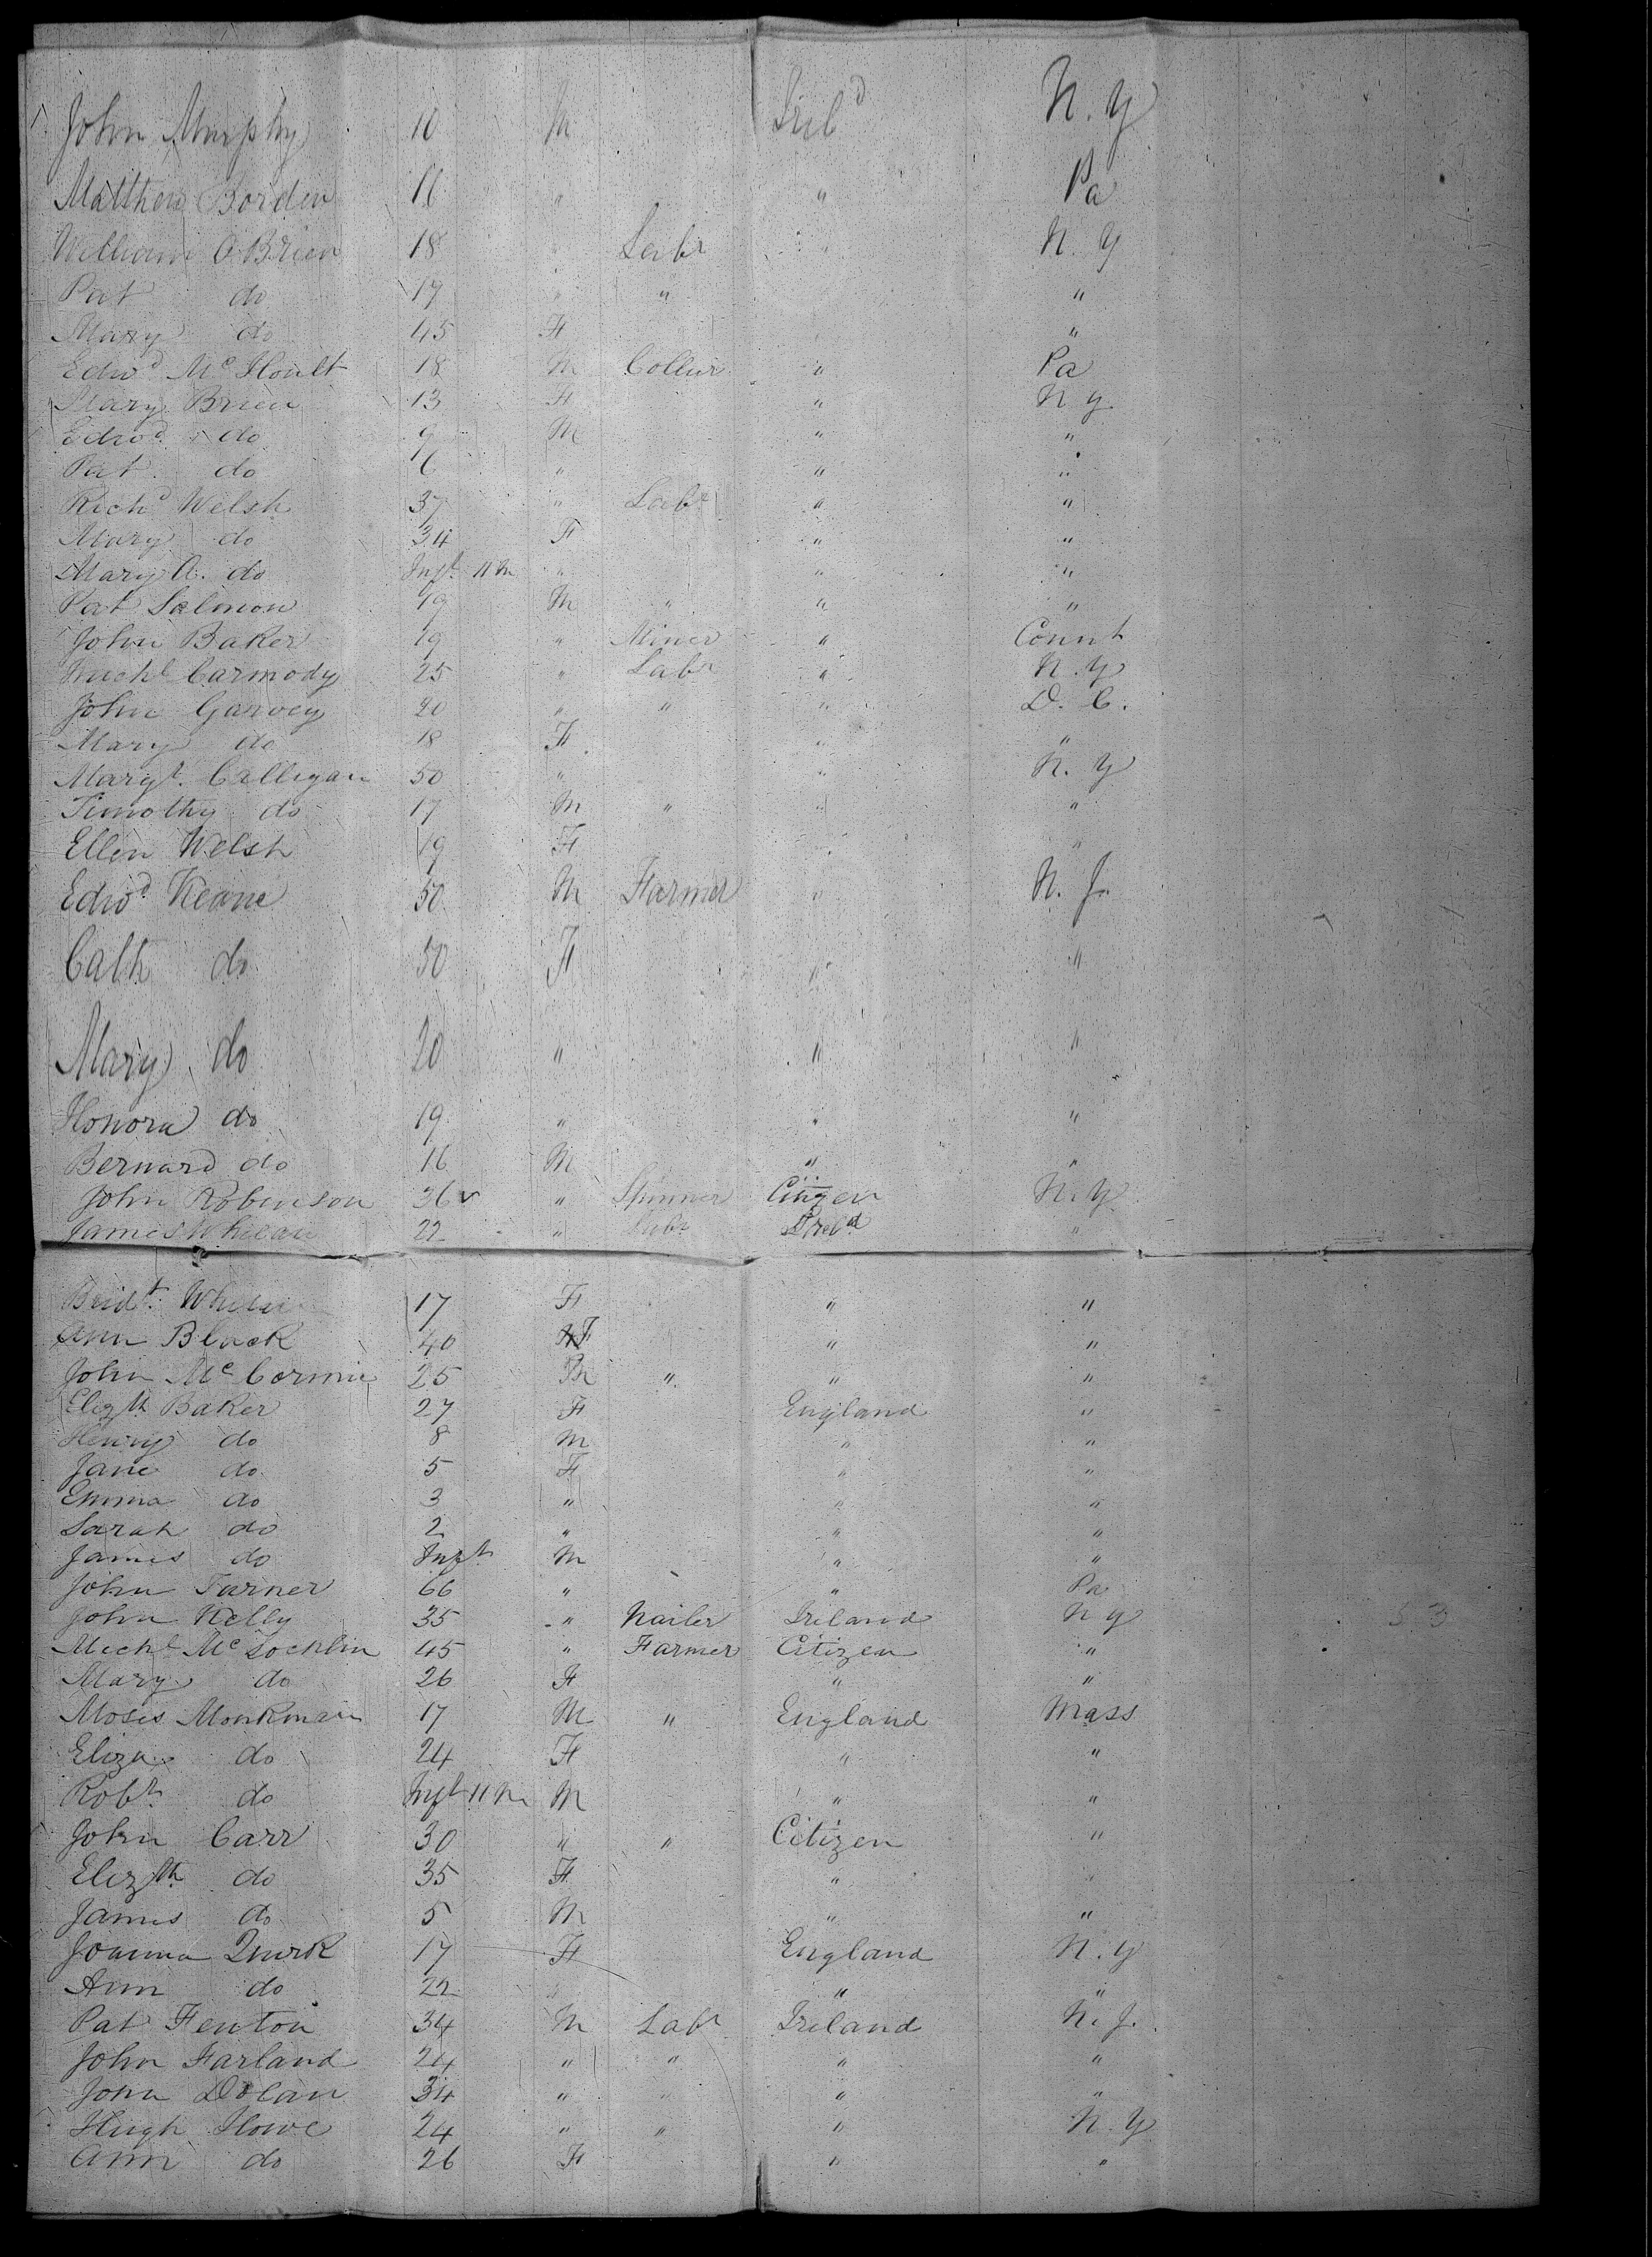 John Murphy 10 M Irel^d N.Y
Matthew Borden 16 " " Pa
William O Brien 18 " Lab^r " N.Y
Pat do 17 " " "
Mary do 45 F "
Edw^d M^c Hoult 18 M Collier " Pa
Mary Brien 13 F " N Y
Edw^d do 9 M " "
Pat do 6 " " "
Rich^d Welsh 37 " Lab^r " "
Mary do 34 F " "
Mary A. do Inf^t 11 m " " "
Pat Salmon 19 M " " "
John Baker 19 " Miner " Connt
Mich^l Carmody 25 " Lab^r " N.Y
John Garvey 20 " " " D.C.
Mary do 18 F " "
Marg^t Calligan 50 " " N.Y
Timothy do 17 M " " "
Ellen Welsh 19 F "
Edw^d Keane 50 M Farmer " N. J.
Cath do 50 F " "
Mary do 20 " " "
Honora do 19 " " "
Bernard do 16 M " "
John Robinson 36 " Spinner Citizen N.Y
James Whelan 22 " Lab^r Irel^d "
Brid^t Whelan 17 F " "
Ann Black 40 F " "
John M^c Cormic 25 M " " "
Eliz^th Baker 27 F England "
Henry do 8 M " "
Jane do 5 F " "
Emma do 3 " " "
Sarah do 2 " " "
James do Inf^t M " "
John Turner 66 " " Pa
John Kelly 35 " Nailer Ireland N Y
Mich^l M^c Locklin 45 " Farmer Citizen "
Mary do 26 F " "
Moses Monkman 17 M " England Mass
Eliza do 24 F " "
Rob^t do Inf^t 11 m M " "
John Carr 30 " " Citizen "
Eliz^th do 35 F " "
James do 5 M " "
Joanna Quirk 17 F England N.Y
Ann do 22 " " "
Pat Fenton 34 M Lab^r Ireland N. J.
John Farland 24 " " " "
John Dolan 34 " " " "
Hugh Howe 24 " " " N.Y
Ann do 26 F " "